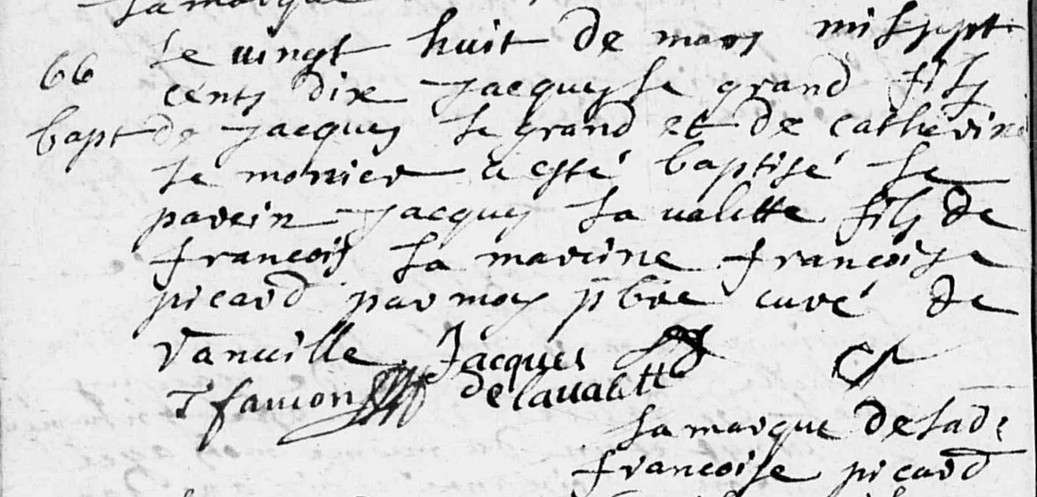 la marque
66 Le vingt huit de mars mil sept
cents dix jacques le grand fils
bapt de jacques le grand et de catherine
le monier a esté baptisé le
parein jacques la valette fils de
francois la mareine francoise
picard par moy pbre curé de
vanville Jacques
faucon de lavalette
la marque de lad
francoise picard